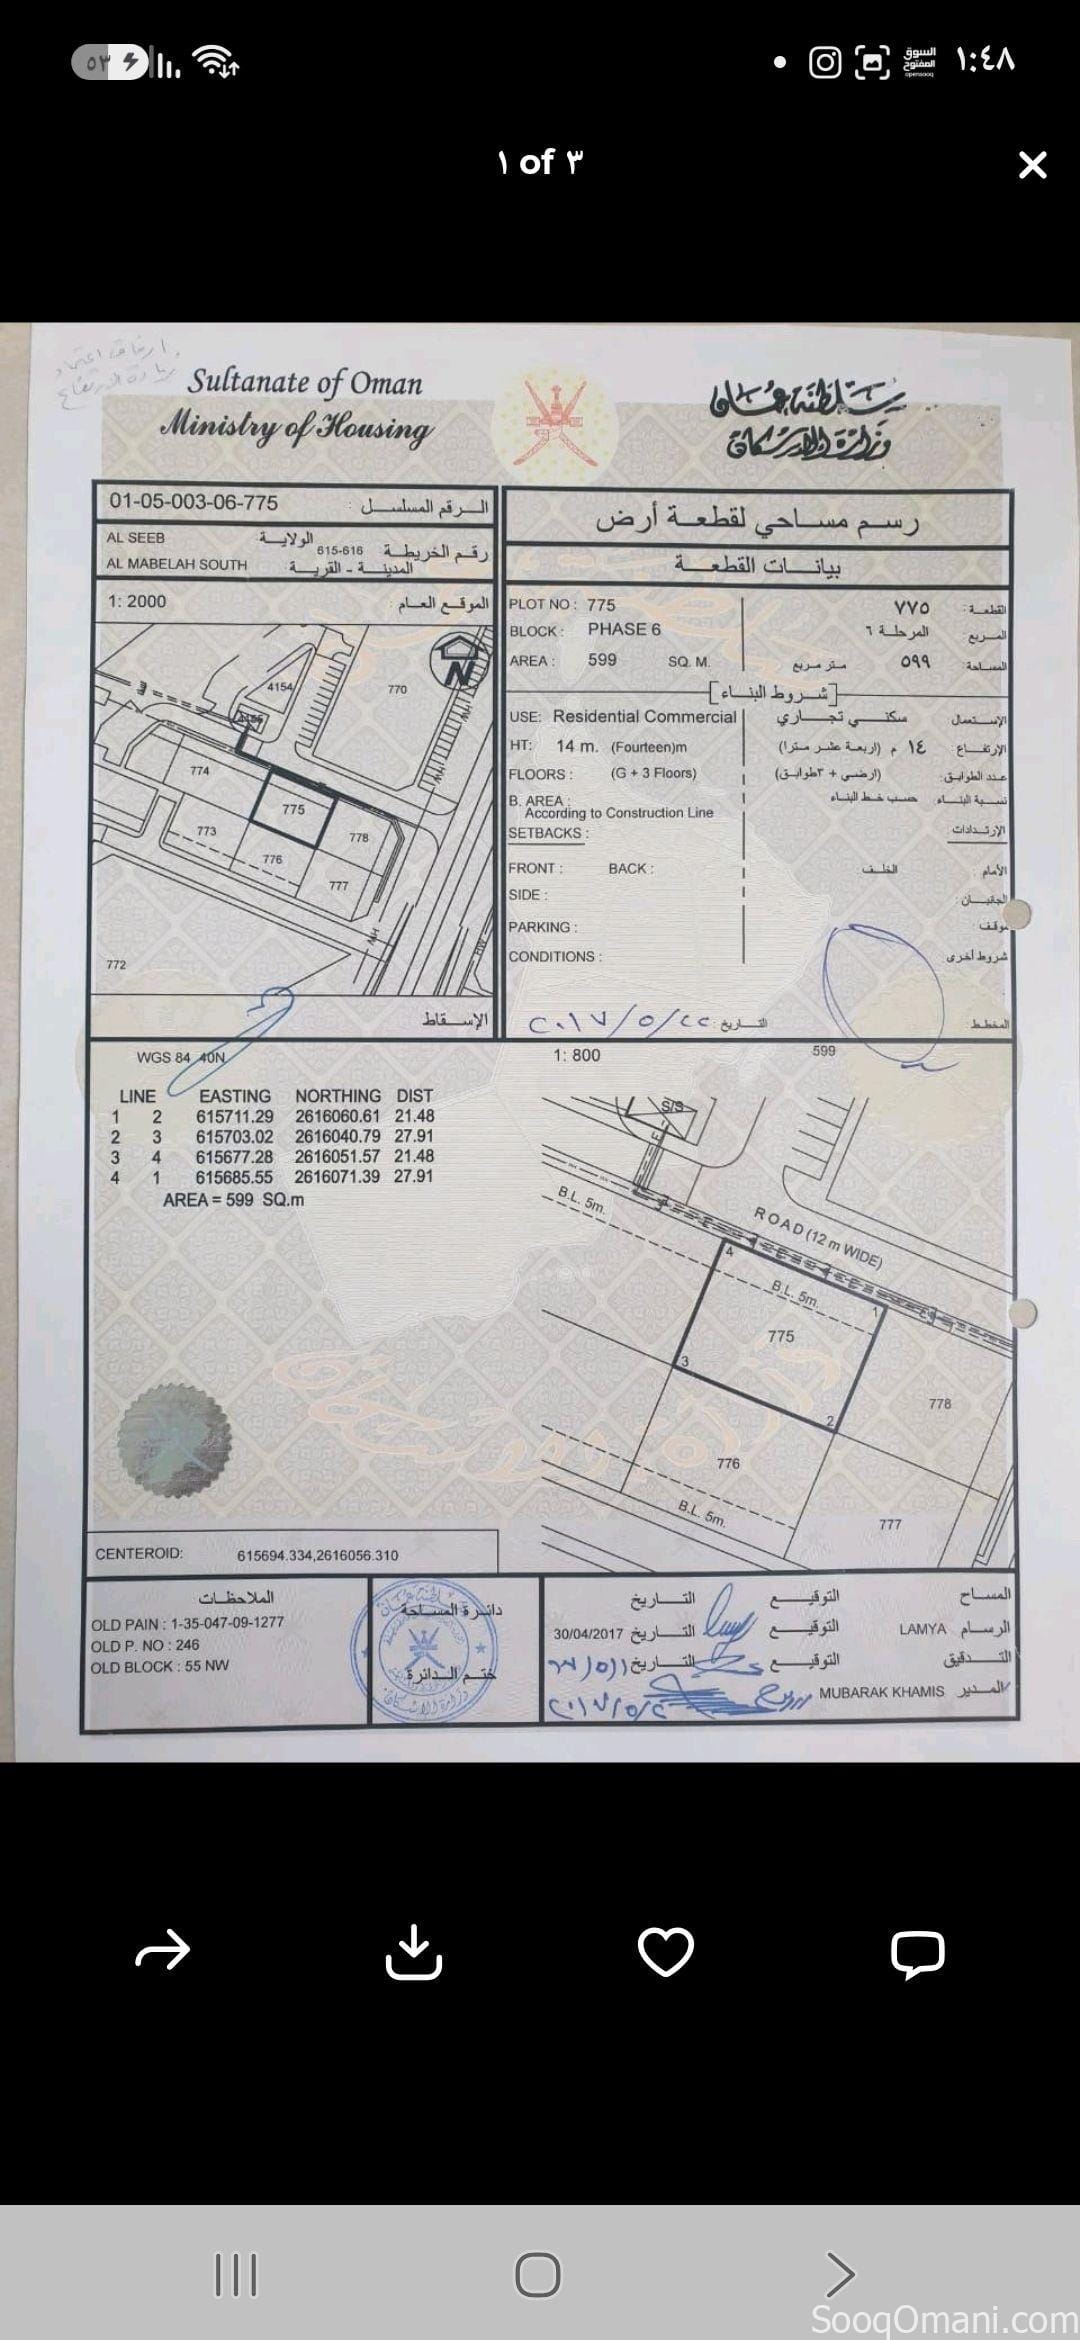 ٥٣
السوق المفتوح
opensooq
١:٤٨
١ of ٣
ارفاق اعتماد
زيادة الارتفاع
Sultanate of Oman
Ministry of Housing
سلطنة عمان
وزارة الإسكان
01-05-003-06-775 الرقم المسلسل :
AL SEEB الولاية
615-616 رقم الخريطة
AL MABELAH SOUTH المدينة - القرية
1: 2000 الموقع العام :
4154
770
4155
774
775
773
778
776
777
772
N
الإسقاط
رسم مساحي لقطعة أرض
بيانات القطعة
PLOT NO : 775 ٧٧٥ القطعة :
BLOCK : PHASE 6 المرحلة ٦ المربع :
AREA : 599 SQ. M. متر مربع ٥٩٩ المساحة :
[شروط البناء]
USE: Residential Commercial سكني تجاري الإستعمال
HT: 14 m. (Fourteen)m ١٤ م (اربعة عشر مترا) الإرتفاع :
FLOORS : (G + 3 Floors) (ارضي + ٣طوابق) عدد الطوابق :
B. AREA : According to Construction Line حسب خط البناء نسبة البناء
SETBACKS : الإرتدادات :
FRONT : BACK : الخلف الأمام :
SIDE : الجانبان :
PARKING : موقف :
CONDITIONS : شروط أخرى
المخطط : التاريخ : ٢٠١٧/٥/٢٢
WGS 84 40N
LINE EASTING NORTHING DIST
1 2 615711.29 2616060.61 21.48
2 3 615703.02 2616040.79 27.91
3 4 615677.28 2616051.57 21.48
4 1 615685.55 2616071.39 27.91
AREA = 599 SQ.m
1: 800
599
S/S
B.L. 5m.
ROAD (12 m WIDE)
4
B.L. 5m.
1
775
3
2
778
776
B.L. 5m.
777
CENTEROID: 615694.334,2616056.310
الملاحظات
OLD PAIN : 1-35-047-09-1277
OLD P. NO : 246
OLD BLOCK : 55 NW
دائرة المساحة
ختم الدائرة
المساح التوقيع التاريخ
الرسام LAMYA التوقيع التاريخ 30/04/2017
التدقيق التوقيع التاريخ
المدير MUBARAK KHAMIS
SooqOmani.com